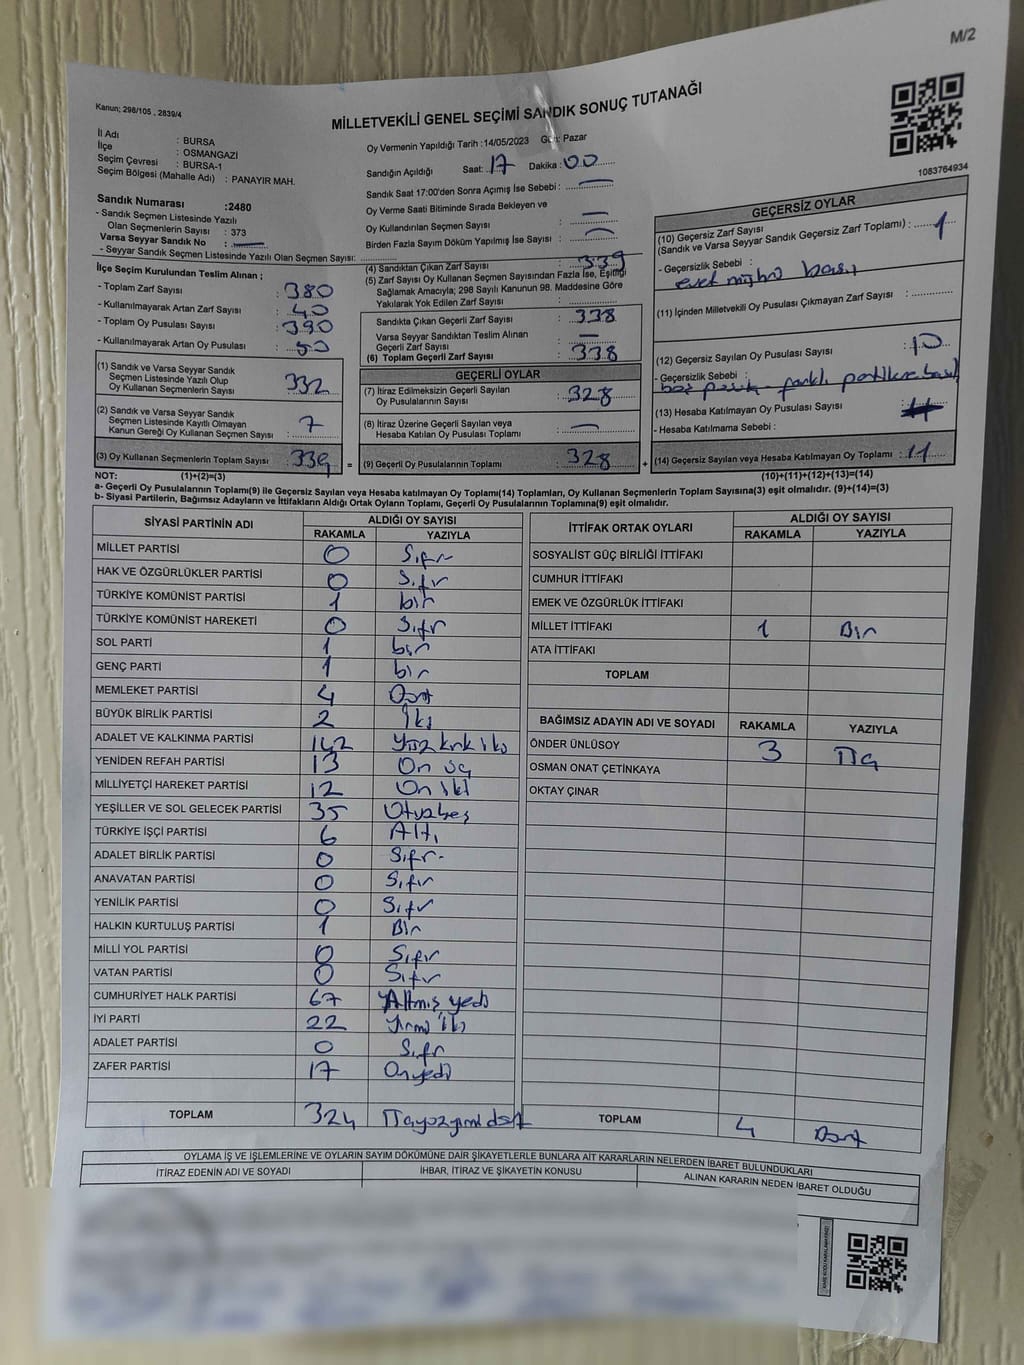 M/2
Kanun; 298/105 , 2839/4
MİLLETVEKİLİ GENEL SEÇİMİ SANDIK SONUÇ TUTANAĞI
1083764934
İl Adı : BURSA
İlçe : OSMANGAZİ
Seçim Çevresi : BURSA-1
Seçim Bölgesi (Mahalle Adı) : PANAYIR MAH.
Sandık Numarası :2480
- Sandık Seçmen Listesinde Yazılı
Olan Seçmenlerin Sayısı : 373
Varsa Seyyar Sandık No :
- Seyyar Sandık Seçmen Listesinde Yazılı Olan Seçmen Sayısı:
Oy Vermenin Yapıldığı Tarih :14/05/2023 Gün: Pazar
Sandığın Açıldığı Saat: 17 Dakika : 00
Sandık Saat 17:00'den Sonra Açımış İse Sebebi :
Oy Verme Saati Bitiminde Sırada Bekleyen ve
Oy Kullandırılan Seçmen Sayısı :
Birden Fazla Sayım Döküm Yapılmış İse Sayısı :
İlçe Seçim Kurulundan Teslim Alınan ;
- Toplam Zarf Sayısı : 380
- Kullanılmayarak Artan Zarf Sayısı : 40
- Toplam Oy Pusulası Sayısı : 390
- Kullanılmayarak Artan Oy Pusulası : 50
(1) Sandık ve Varsa Seyyar Sandık
Seçmen Listesinde Yazılı Olup
Oy Kullanan Seçmenlerin Sayısı : 332
(2) Sandık ve Varsa Seyyar Sandık
Seçmen Listesinde Kayıtlı Olmayan
Kanun Gereği Oy Kullanan Seçmen Sayısı : 7
(3) Oy Kullanan Seçmenlerin Toplam Sayısı : 339 =
(4) Sandıktan Çıkan Zarf Sayısı : 339
(5) Zarf Sayısı Oy Kullanan Seçmen Sayısından Fazla İse, Eşitliği
Sağlamak Amacıyla; 298 Sayılı Kanunun 98. Maddesine Göre
Yakılarak Yok Edilen Zarf Sayısı :
Sandıkta Çıkan Geçerli Zarf Sayısı : 338
Varsa Seyyar Sandıktan Teslim Alınan
Geçerli Zarf Sayısı :
(6) Toplam Geçerli Zarf Sayısı : 338
GEÇERLİ OYLAR
(7) İtiraz Edilmeksizin Geçerli Sayılan
Oy Pusulalarının Sayısı : 328
(8) İtiraz Üzerine Geçerli Sayılan veya
Hesaba Katılan Oy Pusulası Toplamı :
(9) Geçerli Oy Pusulalarının Toplamı : 328 +
GEÇERSİZ OYLAR
(10) Geçersiz Zarf Sayısı
(Sandık ve Varsa Seyyar Sandık Geçersiz Zarf Toplamı) : 1
- Geçersizlik Sebebi :
evet mührü
(11) İçinden Milletvekili Oy Pusulası Çıkmayan Zarf Sayısı :
(12) Geçersiz Sayılan Oy Pusulası Sayısı : 10
- Geçersizlik Sebebi :
boş pusula - farklı
(13) Hesaba Katılmayan Oy Pusulası Sayısı :
- Hesaba Katılmama Sebebi :
(14) Geçersiz Sayılan veya Hesaba Katılmayan Oy Toplamı : 11
NOT: (1)+(2)=(3) (10)+(11)+(12)+(13)=(14)
a- Geçerli Oy Pusulalarının Toplamı(9) ile Geçersiz Sayılan veya Hesaba katılmayan Oy Toplamı(14) Toplamları, Oy Kullanan Seçmenlerin Toplam Sayısına(3) eşit olmalıdır. (9)+(14)=(3)
b- Siyasi Partilerin, Bağımsız Adayların ve İttifakların Aldığı Oyların Toplamı, Geçerli Oy Pusulalarının Toplamına(9) eşit olmalıdır.
SİYASİ PARTİNİN ADI ALDIĞI OY SAYISI
RAKAMLA YAZIYLA
MİLLET PARTİSİ 0 Sıfır
HAK VE ÖZGÜRLÜKLER PARTİSİ 0 Sıfır
TÜRKİYE KOMÜNİST PARTİSİ 1 bir
TÜRKİYE KOMÜNİST HAREKETİ 0 Sıfır
SOL PARTİ 1 bir
GENÇ PARTİ 1 bir
MEMLEKET PARTİSİ 4 Dört
BÜYÜK BİRLİK PARTİSİ 2 İki
ADALET VE KALKINMA PARTİSİ 142 Yüz kırk iki
YENİDEN REFAH PARTİSİ 13 On üç
MİLLİYETÇİ HAREKET PARTİSİ 12 On iki
YEŞİLLER VE SOL GELECEK PARTİSİ 35 Otuzbeş
TÜRKİYE İŞÇİ PARTİSİ 6 Altı
ADALET BİRLİK PARTİSİ 0 Sıfır
ANAVATAN PARTİSİ 0 Sıfır
YENİLİK PARTİSİ 0 Sıfır
HALKIN KURTULUŞ PARTİSİ 1 Bir
MİLLİ YOL PARTİSİ 0 Sıfır
VATAN PARTİSİ 0 Sıfır
CUMHURİYET HALK PARTİSİ 67 Altmış yedi
İYİ PARTİ 22 Yirmi iki
ADALET PARTİSİ 0 Sıfır
ZAFER PARTİSİ 17 Onyedi
TOPLAM 324 Üçyüzyirmi dört
İTTİFAK ORTAK OYLARI ALDIĞI OY SAYISI
RAKAMLA YAZIYLA
SOSYALİST GÜÇ BİRLİĞİ İTTİFAKI
CUMHUR İTTİFAKI
EMEK VE ÖZGÜRLÜK İTTİFAKI
MİLLET İTTİFAKI 1 Bir
ATA İTTİFAKI
TOPLAM
BAĞIMSIZ ADAYIN ADI VE SOYADI RAKAMLA YAZIYLA
ÖNDER ÜNLÜSOY 3 Üç
OSMAN ONAT ÇETİNKAYA
OKTAY ÇINAR
TOPLAM 4 Dört
OYLAMA İŞ VE İŞLEMLERİNE VE OYLARIN SAYIM DÖKÜMÜNE DAİR ŞİKAYETLERLE BUNLARA AİT KARARLARIN NELERDEN İBARET BULUNDUKLARI
İTİRAZ EDENİN ADI VE SOYADI İHBAR, İTİRAZ VE ŞİKAYETİN KONUSU ALINAN KARARIN NEDEN İBARET OLDUĞU